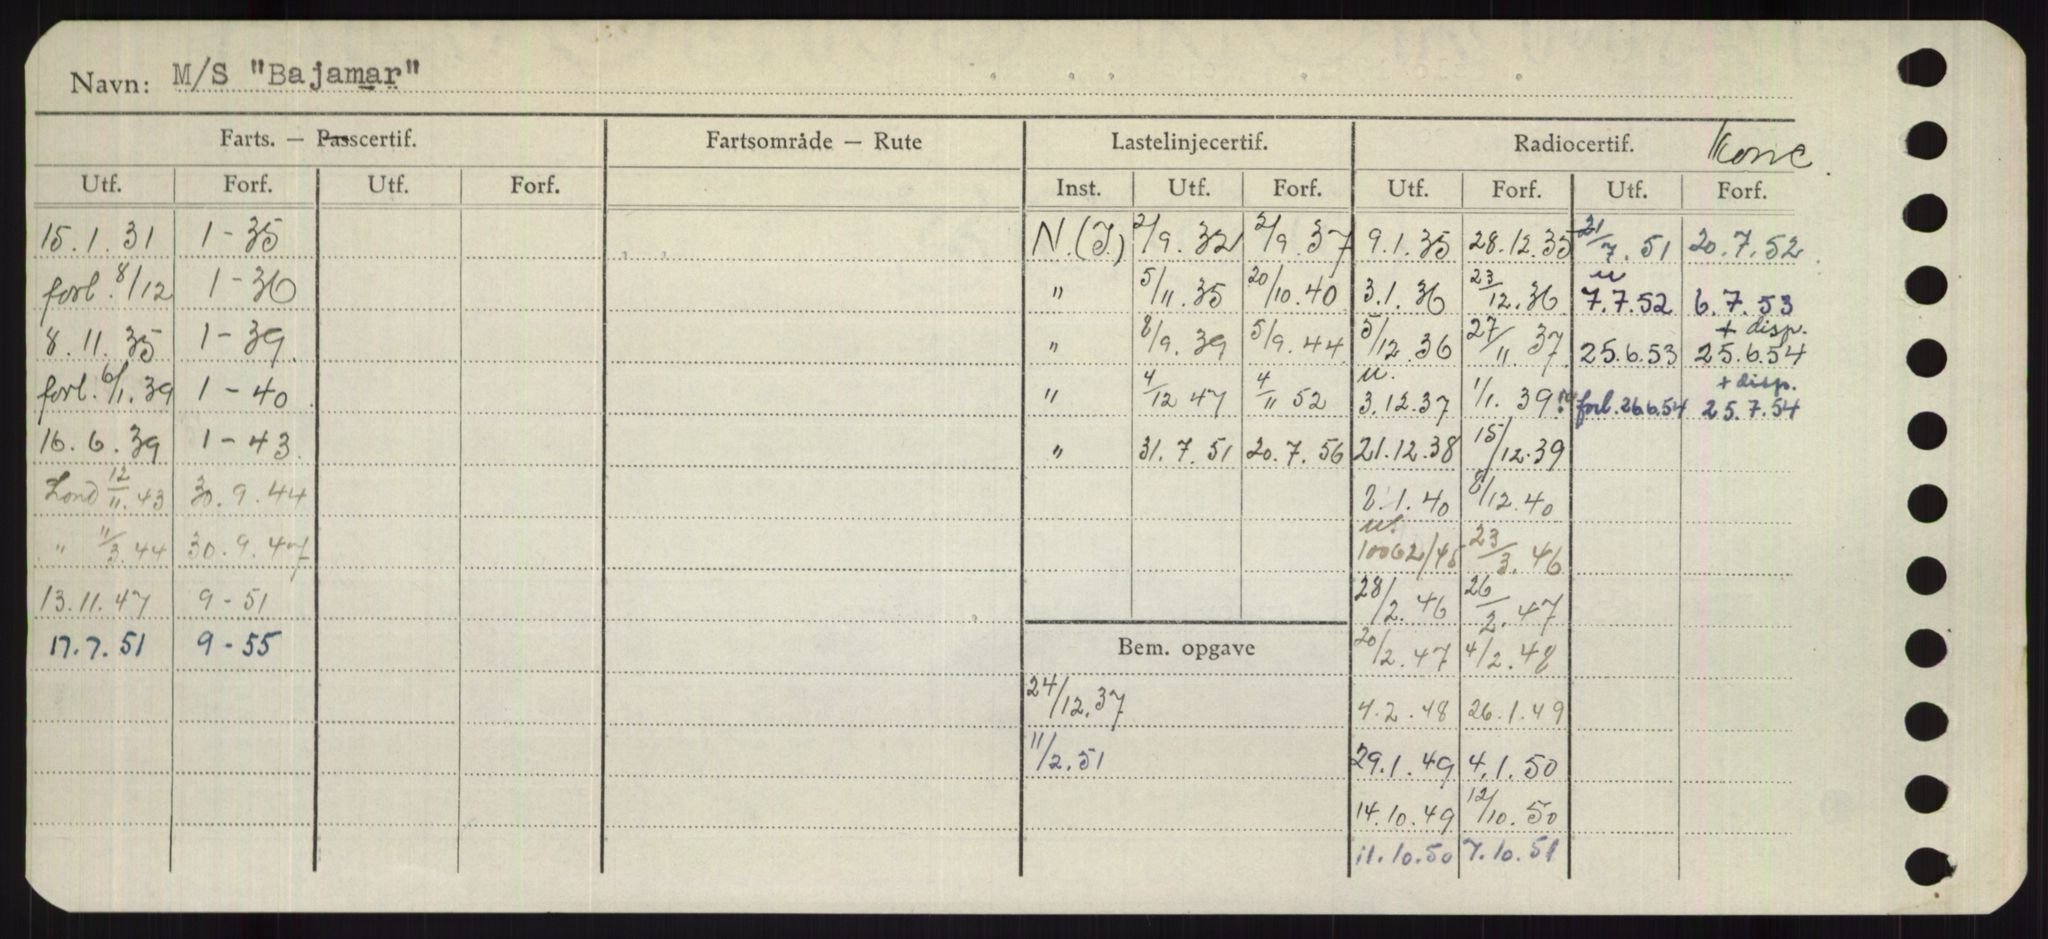 Navn: M/S "Bajamar"
Farts. — Passcertif. Fartsområde — Rute Lastelinjecertif. Radiocertif.
Utf. Forf. Utf. Forf. Inst. Utf. Forf. Utf. Forf. Utf. Forf.
15.1.31 1-35 N.(I.) 2/9.32 2/9.37 9.1.35 28.12.35 21/7.51 20.7.52
forl. 8/12 1-36 " 5/11.35 20/10.40 3.1.36 23/12.36 u 7.7.52 6.7.53
8.11.35 1-39. " 8/9.39 5/9.44 5/12.36 27/11.37 25.6.53 + disp. 25.6.54
forl. 6/1.39 1-40 " 4/12 47 4/11 52 u. 3.12.37 1/1.39 forl. 26.6.54 + disp. 25.7.54
16.6.39 1-43 " 31.7.51 20.7.56 21.12.38 15/12.39
Lond 12/11.43 30.9.44 8.1.40 8/12.40
" 11/3.44 30.9.47 u. 10062/45 23/3.46
13.11.47 9-51 28/2.46 26/2.47
17.7.51 9-55 Bem. opgave 20/2.47 4/2.48
24/12.37 4.2.48 26.1.49
11/2.51 29.1.49 4.1.50
14.10.49 12/10.50
11.10.50 7.10.51